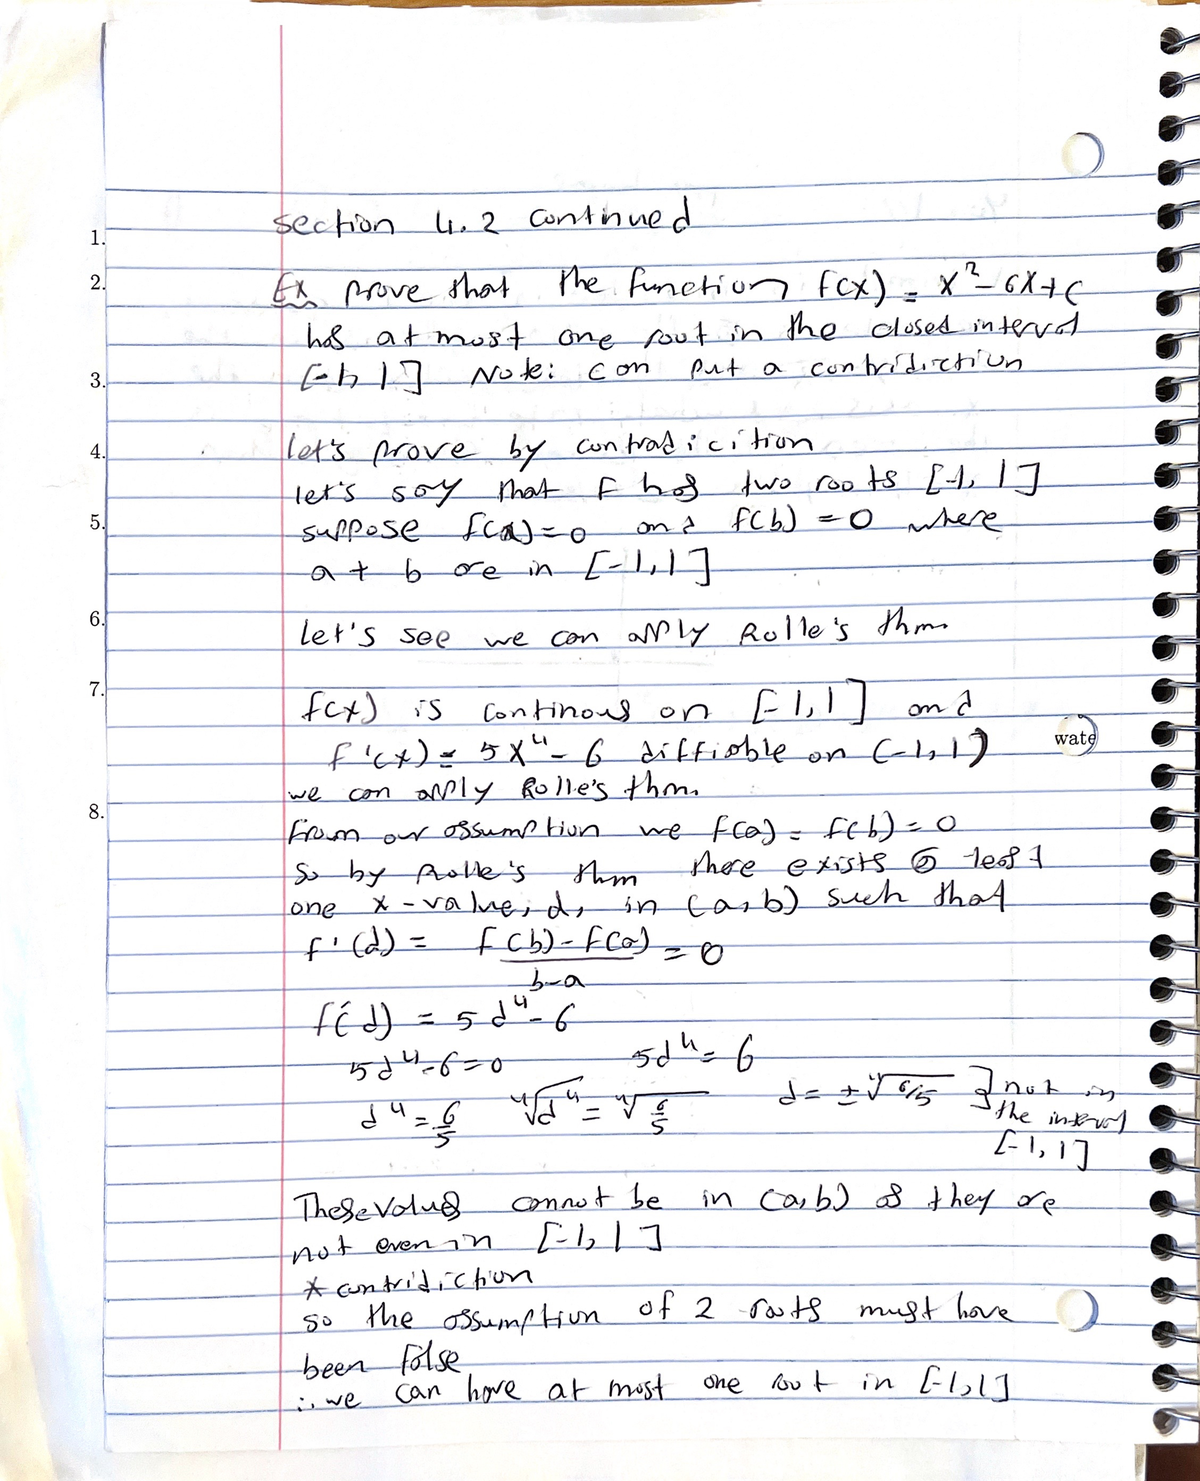 1.
section 4.2 continued
2.
Ex prove that the function f(x) = x² - 6x + c
has at most one root in the closed interval
3.
[-1, 1] Note: can put a contridiction
4.
let's prove by contradicition
let's say that f has two roots [-1, 1]
5.
suppose f(a) = 0 and f(b) = 0 where
a + b are in [-1, 1]
6.
let's see we can apply Rolle's thm.
7.
f(x) is continous on [-1, 1] and
f'(x) = 5x⁴ - 6 diffiable on (-1, 1)
wate
we can apply Rolle's thm.
8.
From our assumption we f(a) = f(b) = 0
So by Rolle's thm there exists @ least
one x-value, d, in (a, b) such that
f'(d) = f(b) - f(a) = 0
b-a
f'(d) = 5d⁴ - 6
5d⁴ - 6 = 0 5d⁴ = 6
d⁴ = 6/5 ⁴√d⁴ = ⁴√6/5 d = ± ⁴√6/5 } not in
the interval
[-1, 1]
These values cannot be in (a, b) as they are
not even in [-1, 1]
* contridiction
so the assumption of 2 roots must have
been false
∴ we can have at most one root in [-1, 1]